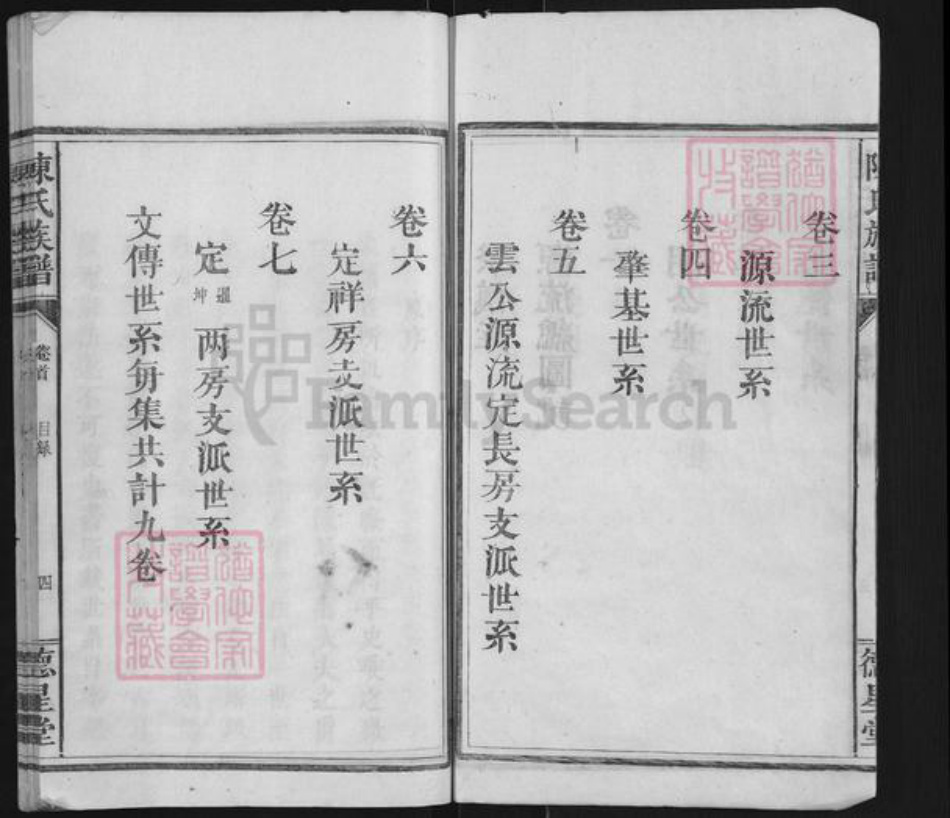 卷三
源流世系
卷四
肇基世系
卷五
雲公源流定長房支派世系
卷六
定祥房支派世系
卷七
定 暹坤 两房支派世系
文傳世系每集共計九卷
陳氏族譜
卷首
目録
四
德星堂
陳氏族譜
德星堂
FamilySearch